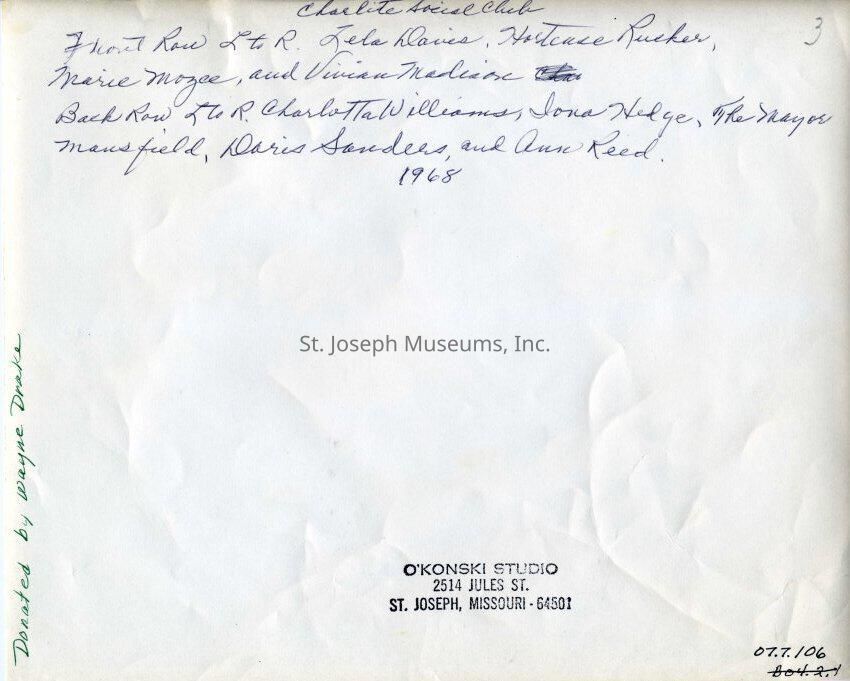 Charlite Social Club
3
Front Row L to R. Lela Davis, Hortense Rucker,
Marie Mozee, and Vivian Madison
Back Row L to R. Charlotta Williams, Iona Hedge, The Mayor
Mansfield, Doris Sanders, and Ann Reed.
1968
St. Joseph Museums, Inc.
Donated by Wayne Drake
O'KONSKI STUDIO
2514 JULES ST.
ST. JOSEPH, MISSOURI - 64501
07.7.106
B04.2.1